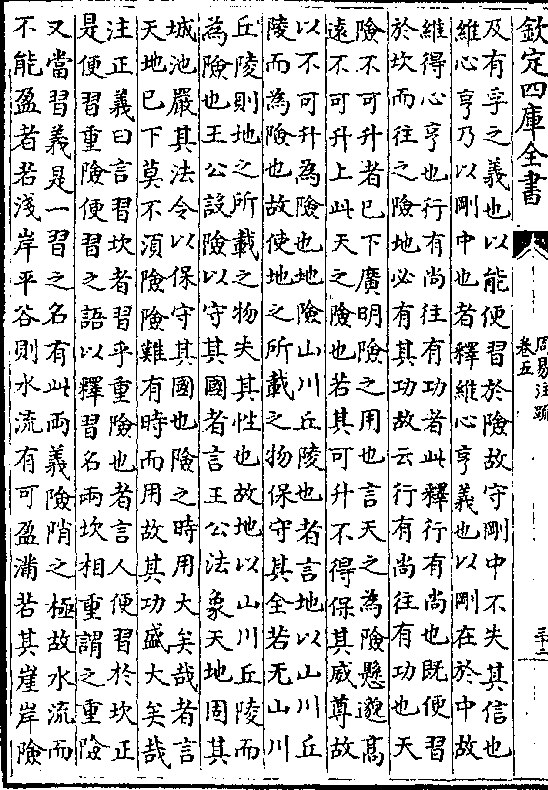 欽定四庫全書
周易注疏
卷五
三十二
及有孚之義也以能便習於險故守剛中不失其信也
維心亨乃以剛中也者釋維心亨義也以剛在於中故
維得心亨也行有尚往有功者此釋行有尚也既便習
於坎而往之險地必有其功故云行有尚往有功也天
險不可升者已下廣明險之用也言天之為險懸邈高
遠不可升上此天之險也若其可升不得保其威尊故
以不可升為險也地險山川丘陵也者言地以山川丘
陵而為險也故使地之所載之物保守其全若无山川
丘陵則地之所載之物失其性也故地以山川丘陵而
為險也王公設險以守其國者言王公法象天地固其
城池嚴其法令以保守其國也險之時用大矣哉者言
天地已下莫不湏險險難有時而用故其功盛大矣哉
注正義曰言習坎者習乎重險也者言人便習於坎正
是便習重險便習之語以釋習名兩坎相重謂之重險
又當習義是一習之名有此兩義險陗之極故水流而
不能盈者若淺岸平谷則水流有可盈滿若其崖岸險